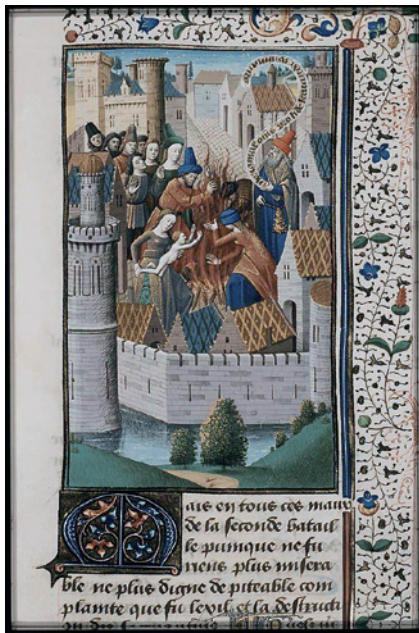 Mais en tous ces maux
de la seconde batail
le punique ne fu
riens plus misera
ble ne plus digne de piteable com
plainte que fu lexil et la destructi